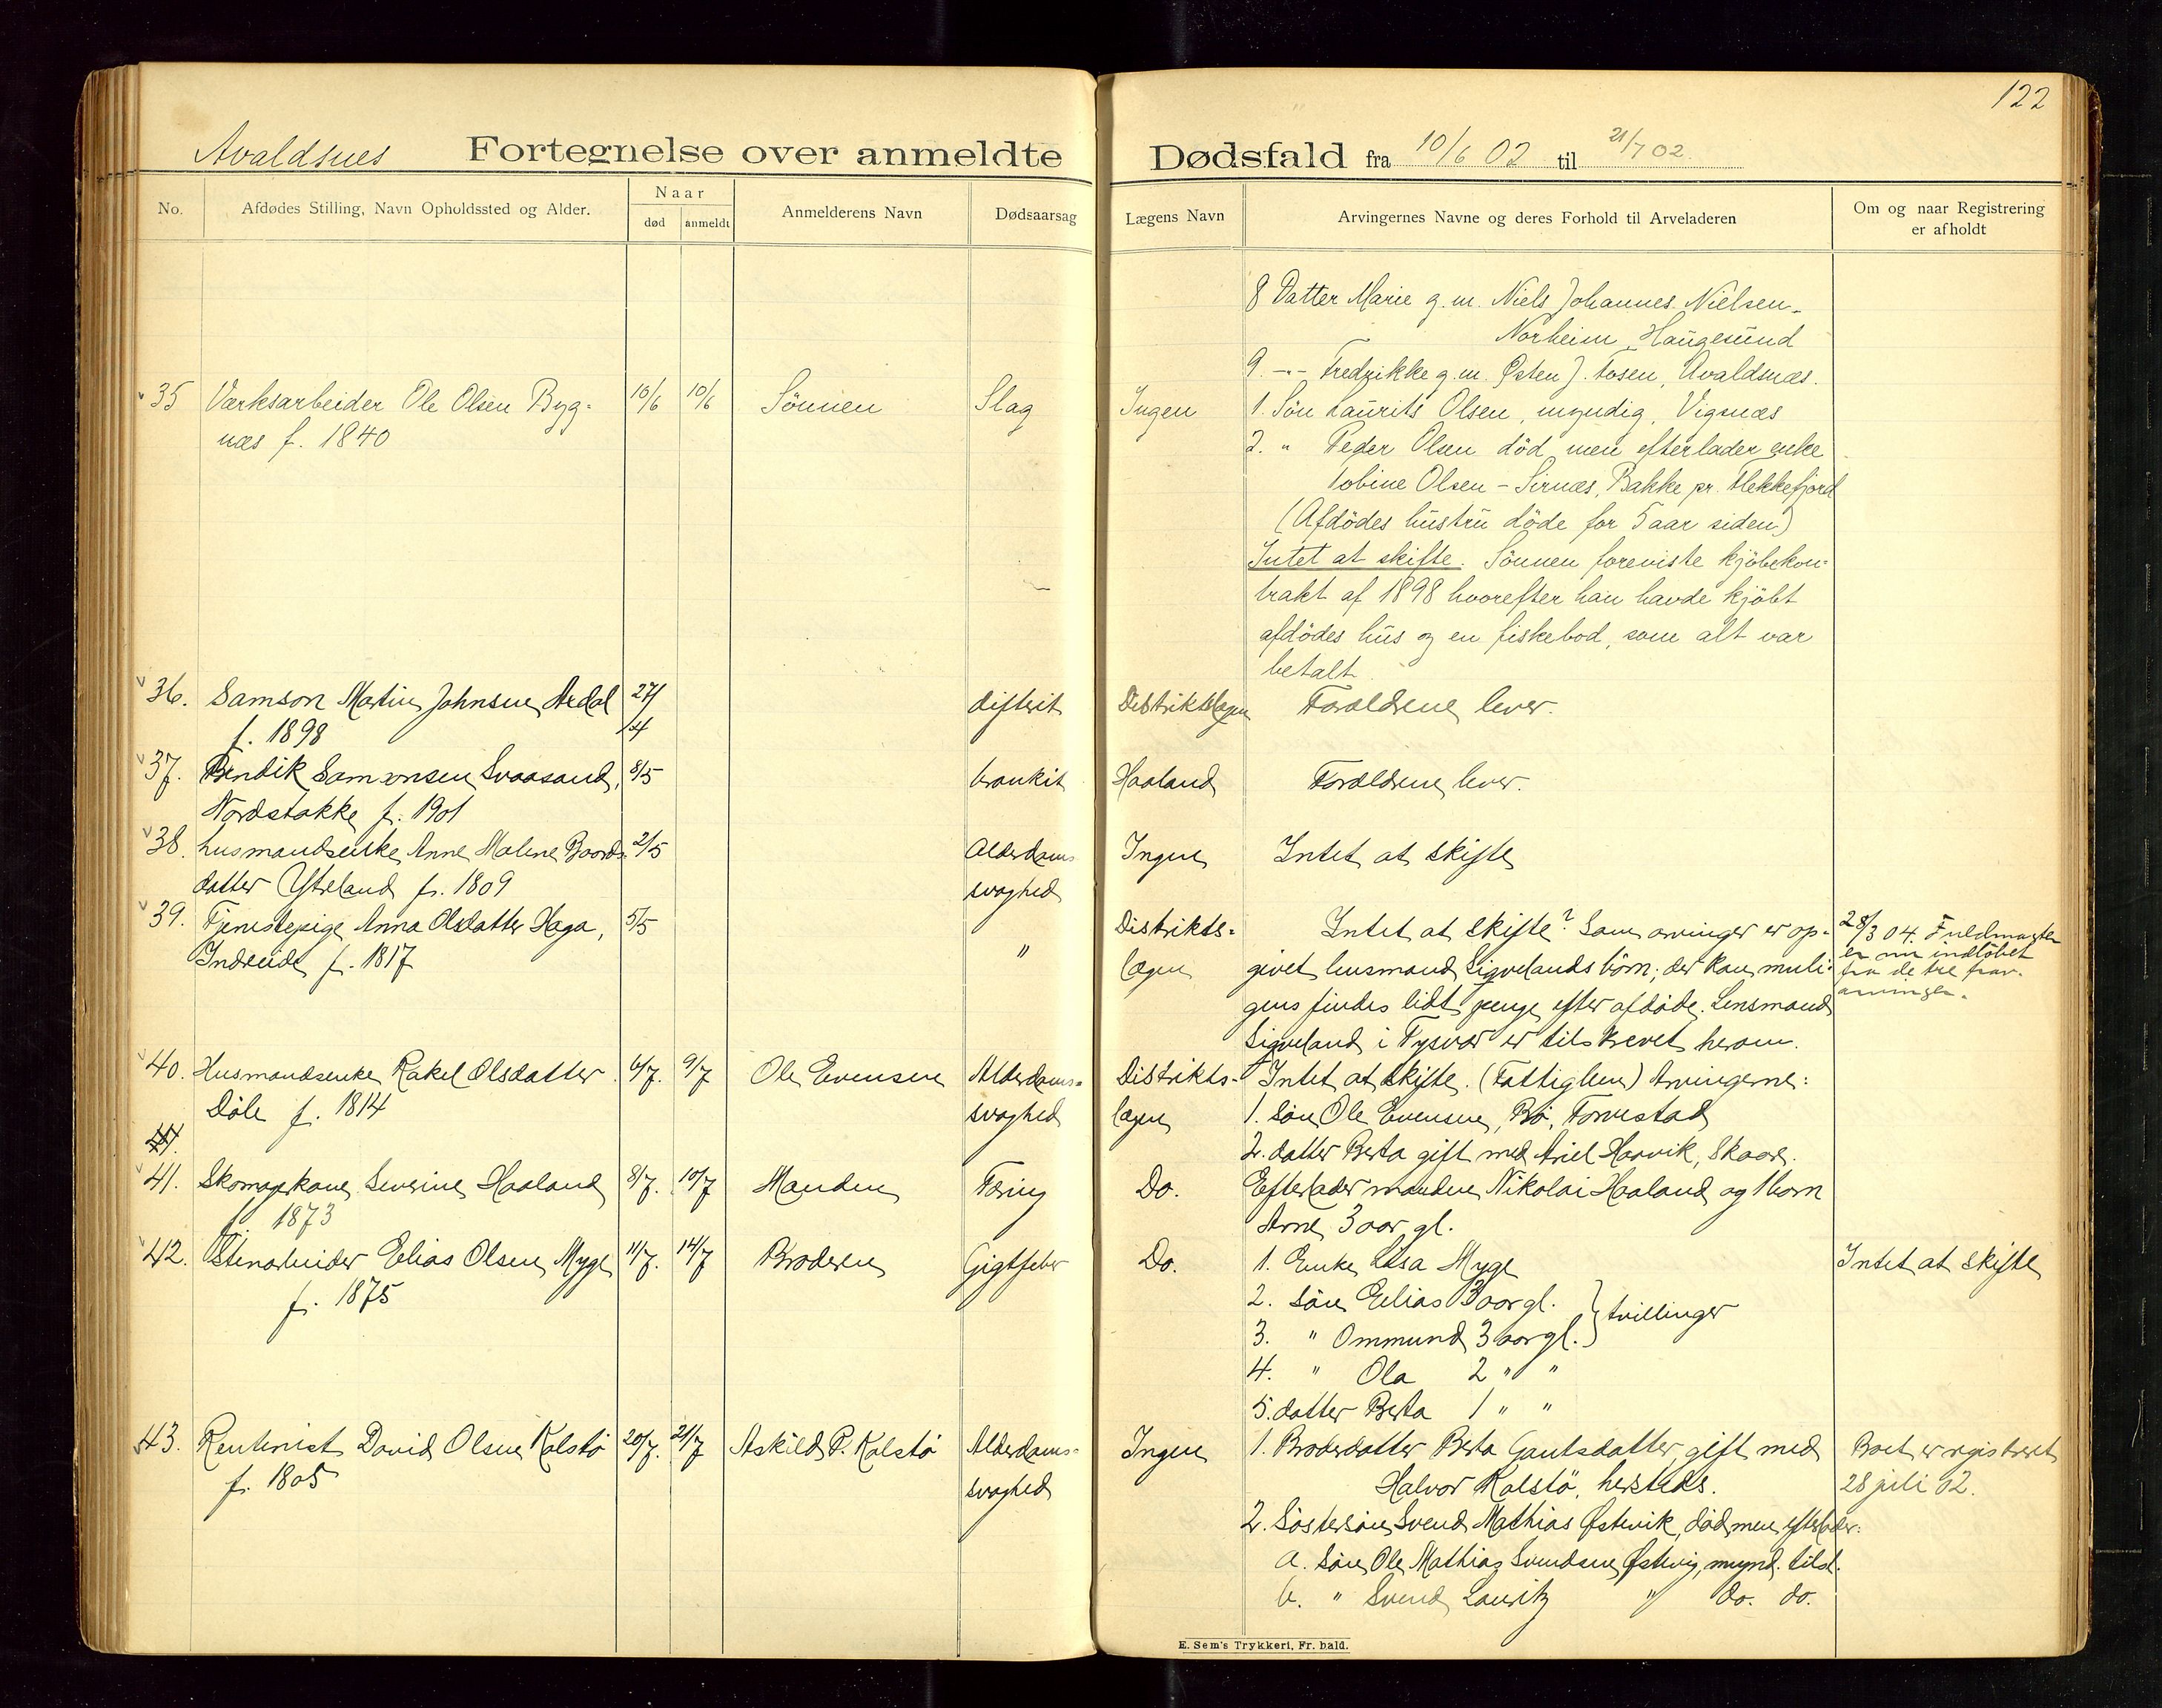 122
Avaldsnes Fortegnelse over anmeldte Dødsfald fra 10/6 02 til 21/7 02.
No.
Afdødes Stilling, Navn Opholdssted og Alder.
Naar
død
anmeldt
Anmelderens Navn
Dødsaarsag
Lægens Navn
Arvingernes Navne og deres Forhold til Arveladeren
Om og naar Registrering
er afholdt
8 Datter Marie g.m. Niels Johannes Nielsen-
Norheim, Haugesund
9 -"- Fredrikke g.m. Østen J. Fosen, Avaldsnæs.
35 Værksarbeider Ole Olsen Byg- 10/6 10/6 Sönnen Slag Ingen 1. Sön Laurits Olsen, myndig, Vignæs
næs f. 1840
2. " Peder Olsen död, men efterlader enke
Tobine Olsen - Sirnæs, Bakke pr. Flekkefjord
(Afdödes hustru döde for 5 aar siden)
Intet at skifte. Sönnen foreviste kjöbekon-
trakt af 1898 hvorefter han havde kjöbt
afdödes hus og en fiskebod, som alt var
betalt.
36. Samson Martin Johnsen Ardal 27/4 difterit Distriktslægen Forældrene lever.
f. 1898
37. Bendik Samsonsen Svaasand, 8/5 bronkit Haaland Forældrene lever.
Nordstokke f. 1901
38. husmandsenke Anne Malene Baards- 2/5 Alderdoms- Ingen Intet at skifte
datter Ytreland f. 1809 svaghed
39. Tjenestepige Anna Olsdatter Haga, 5/5 " Distrikts- Intet at skifte? Som arvinger er op- 28/3 04. Fuldmagten
Indreide f. 1817 lægen givet husmand Sigvelands börn; der kan muli- er nu indlöbet
fra de tre
arvinger.
gens findes lidt penge efter afdöde. Lensmand
Sigveland i Tysvær er tilskrevet herom.
40. Husmandsenke Rakel Olsdatter 6/7. 9/7 Ole Evensen Alderdoms- Distrikts- Intet at skifte. (Fattiglem) Arvingerne:
Döle f. 1814 svaghed lægen 1. Sön Ole Evensen, Bö, Torvestad
2. datter Berta gift med Ariel Harvik, Skaare.
41. Skomagerkone Severine Haaland 8/7. 10/7 Manden Tæring Do. Efterlader manden Nikolai Haaland og 1 barn
f. 1873
Arne 3 aar gl.
42. Stenarbeider Elias Olsen Myge 11/7. 14/7 Broderen Gigtfeber Do. 1. Enke Lisa Myge Intet at skifte
f. 1875
2. Sön Elias 3 aar gl. } tvillinger
3. " Ommund 3 aar gl.
4. " Ola 2 " "
5. datter Berta 1 " "
43. Rentenist David Olsen Kolstö 20/7. 21/7 Askild P. Kolstö Alderdoms- Ingen 1. Broderdatter Berta Gautsdatter, gift med Boet er registreret
f. 1805 svaghed Halvor Kolstö, hersteds. 28 juli 02.
2. Söstersön Svend Mathias Østevik, död, men efterlader:
a. Sön Ole Mathias Svendsen Østevig, mynd. tilst.
b. " Svend Lauritz " do. do.
E. Sem's Trykkeri, Fr.hald.